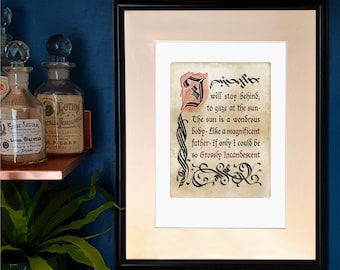 I
will stay behind,
to gaze at the sun·
The sun is a wondrous
body· Like a magnificent
father· If only I could be
so Grossly Incandescent